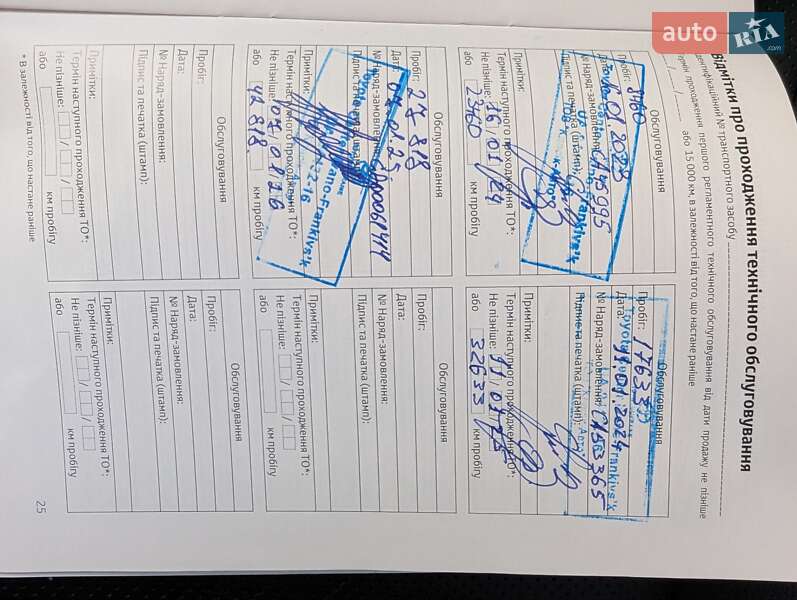 auto
RIA
.com
Відмітки про проходження технічного обслуговування
Ідентифікаційний № транспортного засобу
Термін проходження першого регламентного технічного обслуговування від дати продажу не пізніше
/ / або 15 000 км, в залежності від того, що настане раніше
Обслуговування
Пробіг:
Дата: 01 2023
№ Наряд-замовлення: CA45095
Підпис та печатка (штамп):
Примітки:
Термін наступного проходження ТО*:
Не пізніше: 16/01/24
або 23160 км пробігу
Обслуговування
Пробіг: 17633
Дата: 11.01.2024
№ Наряд-замовлення: CA53365
Підпис та печатка (штамп):
Примітки:
Термін наступного проходження ТО*:
Не пізніше: 11/01/25
або 32633 км пробігу
Обслуговування
Пробіг: 27 818
Дата:
№ Наряд-замовлення:
Ivano-Frankivs'k
Примітки:
Термін наступного проходження ТО*:
Не пізніше:
або 42 818 км пробігу
Обслуговування
Пробіг:
Дата:
№ Наряд-замовлення:
Підпис та печатка (штамп):
Примітки:
Термін наступного проходження ТО*:
Не пізніше: / /
або км пробігу
Обслуговування
Пробіг:
Дата:
№ Наряд-замовлення:
Підпис та печатка (штамп):
Примітки:
Термін наступного проходження ТО*:
Не пізніше: / /
або км пробігу
Обслуговування
Пробіг:
Дата:
№ Наряд-замовлення:
Підпис та печатка (штамп):
Примітки:
Термін наступного проходження ТО*:
Не пізніше: / /
або км пробігу
* В залежності від того, що настане раніше
25